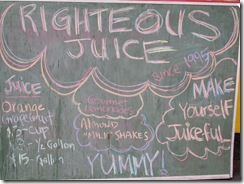 RIGHTEOUS
JUICE
Since 1995
JUICE
Orange
Grapefruit
$2-Cup
½ Gallon
$15-Gallon
Gourmet
ALMOND
"MILK" SHAKES
YUMMY!
MAKE
Yourself
Juiceful